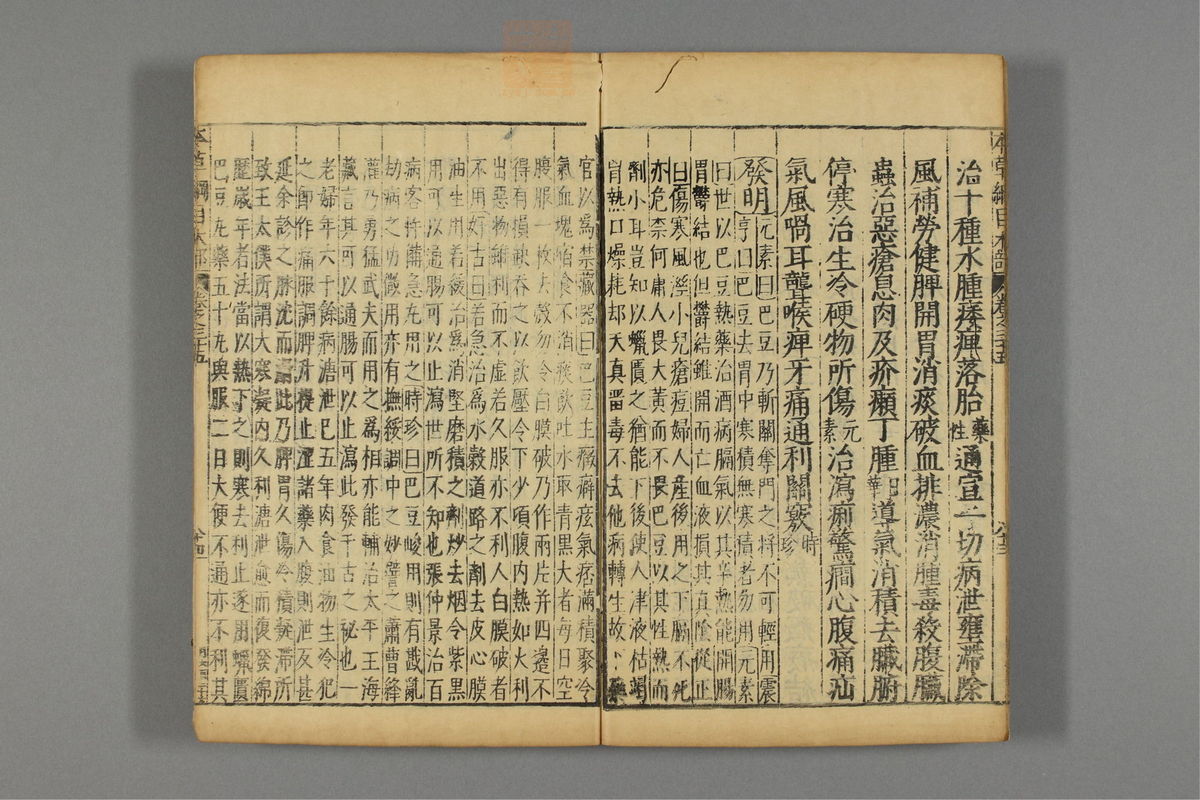 治十種水腫痿痺落胎藥性通宣一切病泄壅滯除
風補勞健脾開胃消痰破血排濃消腫毒殺腹臟
蟲治惡瘡息肉及疥癩丁腫日華導氣消積去臟腑
停寒治生冷硬物所傷元素治瀉痢驚癇心腹痛疝
氣風喎耳聾喉痺牙痛通利關竅時珍
發明元素曰巴豆乃斬關奪門之將不可輕用震
亨曰巴豆去胃中寒積無寒積者勿用元素
曰世以巴豆熱藥治酒病膈氣以其辛熱能開腸
胃鬱結也但鬱結雖開而亡血液損其真陰從正
曰傷寒風溼小兒瘡痘婦人產後用之下膈不死
亦危柰何庸人畏大黃而不畏巴豆以其性熱而
劑小耳豈知以蠟匱之猶能下後使人津液枯竭
胷熱口燥耗却天真畱毒不去他病轉生故下藥
官以為禁藏器曰巴豆主癥癖痃氣痞滿積聚冷
氣血塊宿食不消痰飲吐水取青黑大者每日空
腹服一枚去殼勿令白膜破乃作兩片并四邊不
得有損缺吞之以飲壓令下少頃腹内熱如火利
出惡物雖利而不虛若久服亦不利人白膜破者
不用好古曰若急治為水穀道路之劑去皮心膜
油生用若緩治為消堅磨積之劑炒去烟令紫黑
用可以通腸可以止瀉世所不知也張仲景治百
病客忤備急丸用之時珍曰巴豆峻用則有戡亂
劫病之功微用亦有撫綏調中之妙譬之蕭曹絳
灌乃勇猛武夫而用之為相亦能輔治太平王海
藏言其可以通腸可以止瀉此發千古之秘也一
老婦年六十餘病溏泄已五年肉食油物生冷犯
之即作痛服調脾升提止澀諸藥入腹則泄反甚
延余診之脉沈而滑此乃脾胃久傷冷積凝滯所
致王太僕所謂大寒凝内久利溏泄愈而復發綿
歷歲年者法當以熱下之則寒去利止遂用蠟匱
巴豆丸藥五十丸與服二日大便不通亦不利其
本草綱目木部 卷之三十五